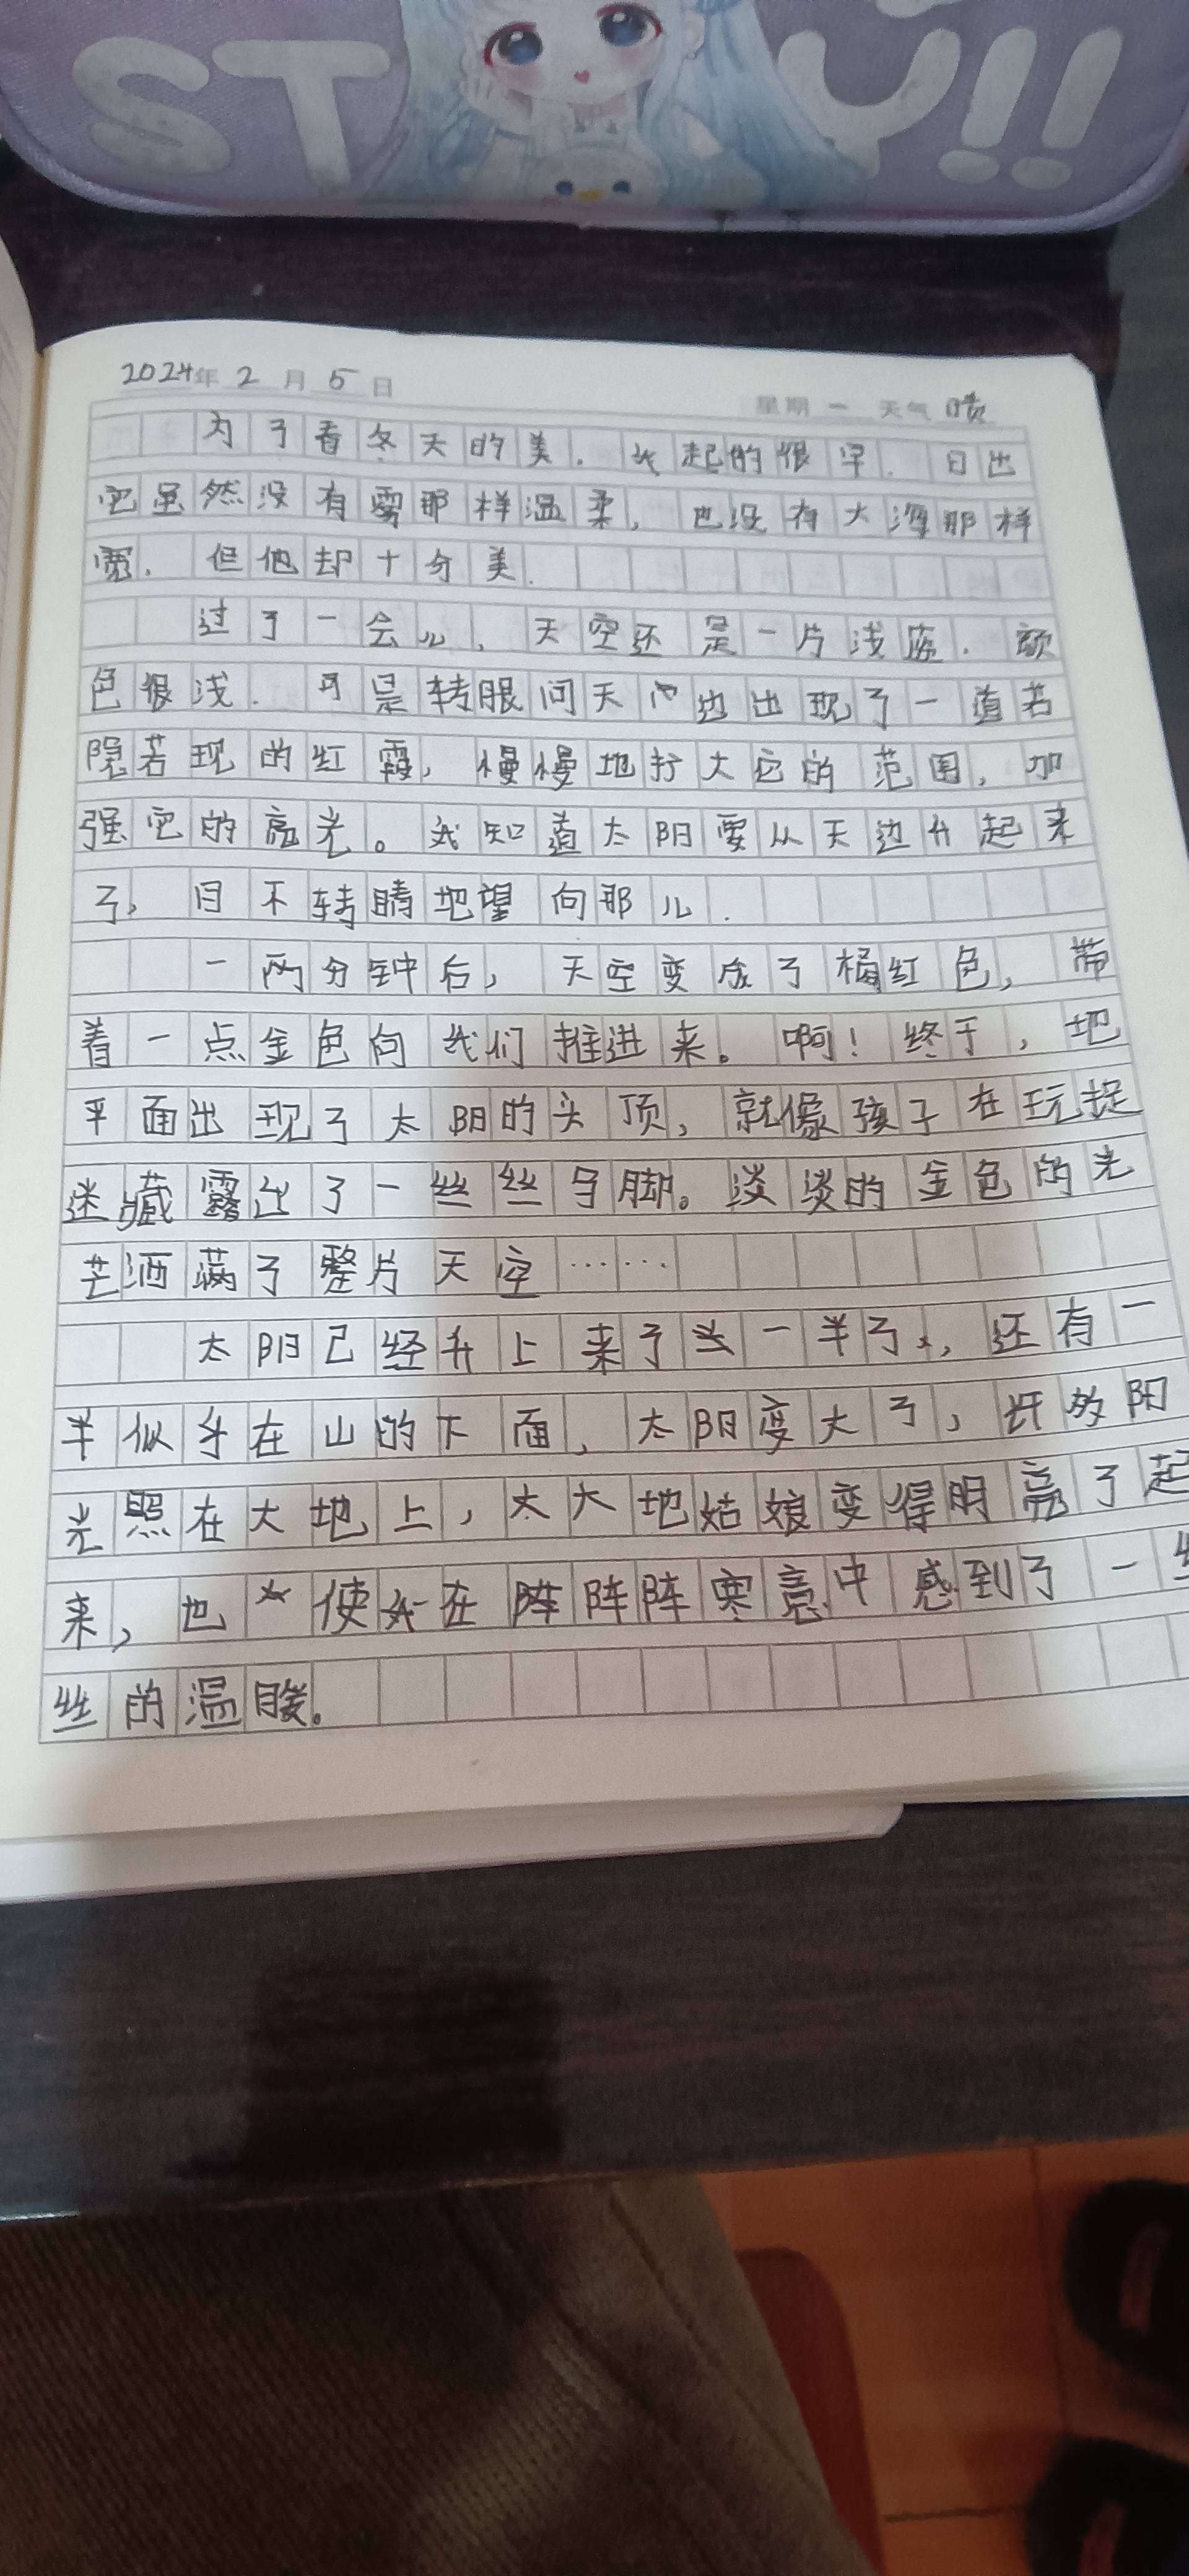 ST
2024年2月5日
星期一 天气 晴
为了看冬天的美.我起的很早.日出
它虽然没有雾那样温柔,也没有大海那样
宽.但他却十分美.
过了一会儿,天空还是一片浅蓝.颜
色很浅.可是转眼间天边出现了一道若
隐若现的红霞,慢慢地扩大它的范围,加
强它的亮光。我知道太阳要从天边升起来
了,目不转睛地望向那儿.
一两分钟后,天空变成了橘红色,带
着一点金色向我们推进来。啊!终于,地
平面出现了太阳的头顶,就像孩子在玩捉
迷藏露出了一丝丝马脚。淡淡的金色的光
芒洒满了整片天空……
太阳已经升上来了一半了,还有一
半似乎在山的下面,太阳变大了,好放阳
光照在大地上,大地姑娘变得明亮了起
来,也使我在阵阵阵寒意中感到了一丝
丝的温暖。